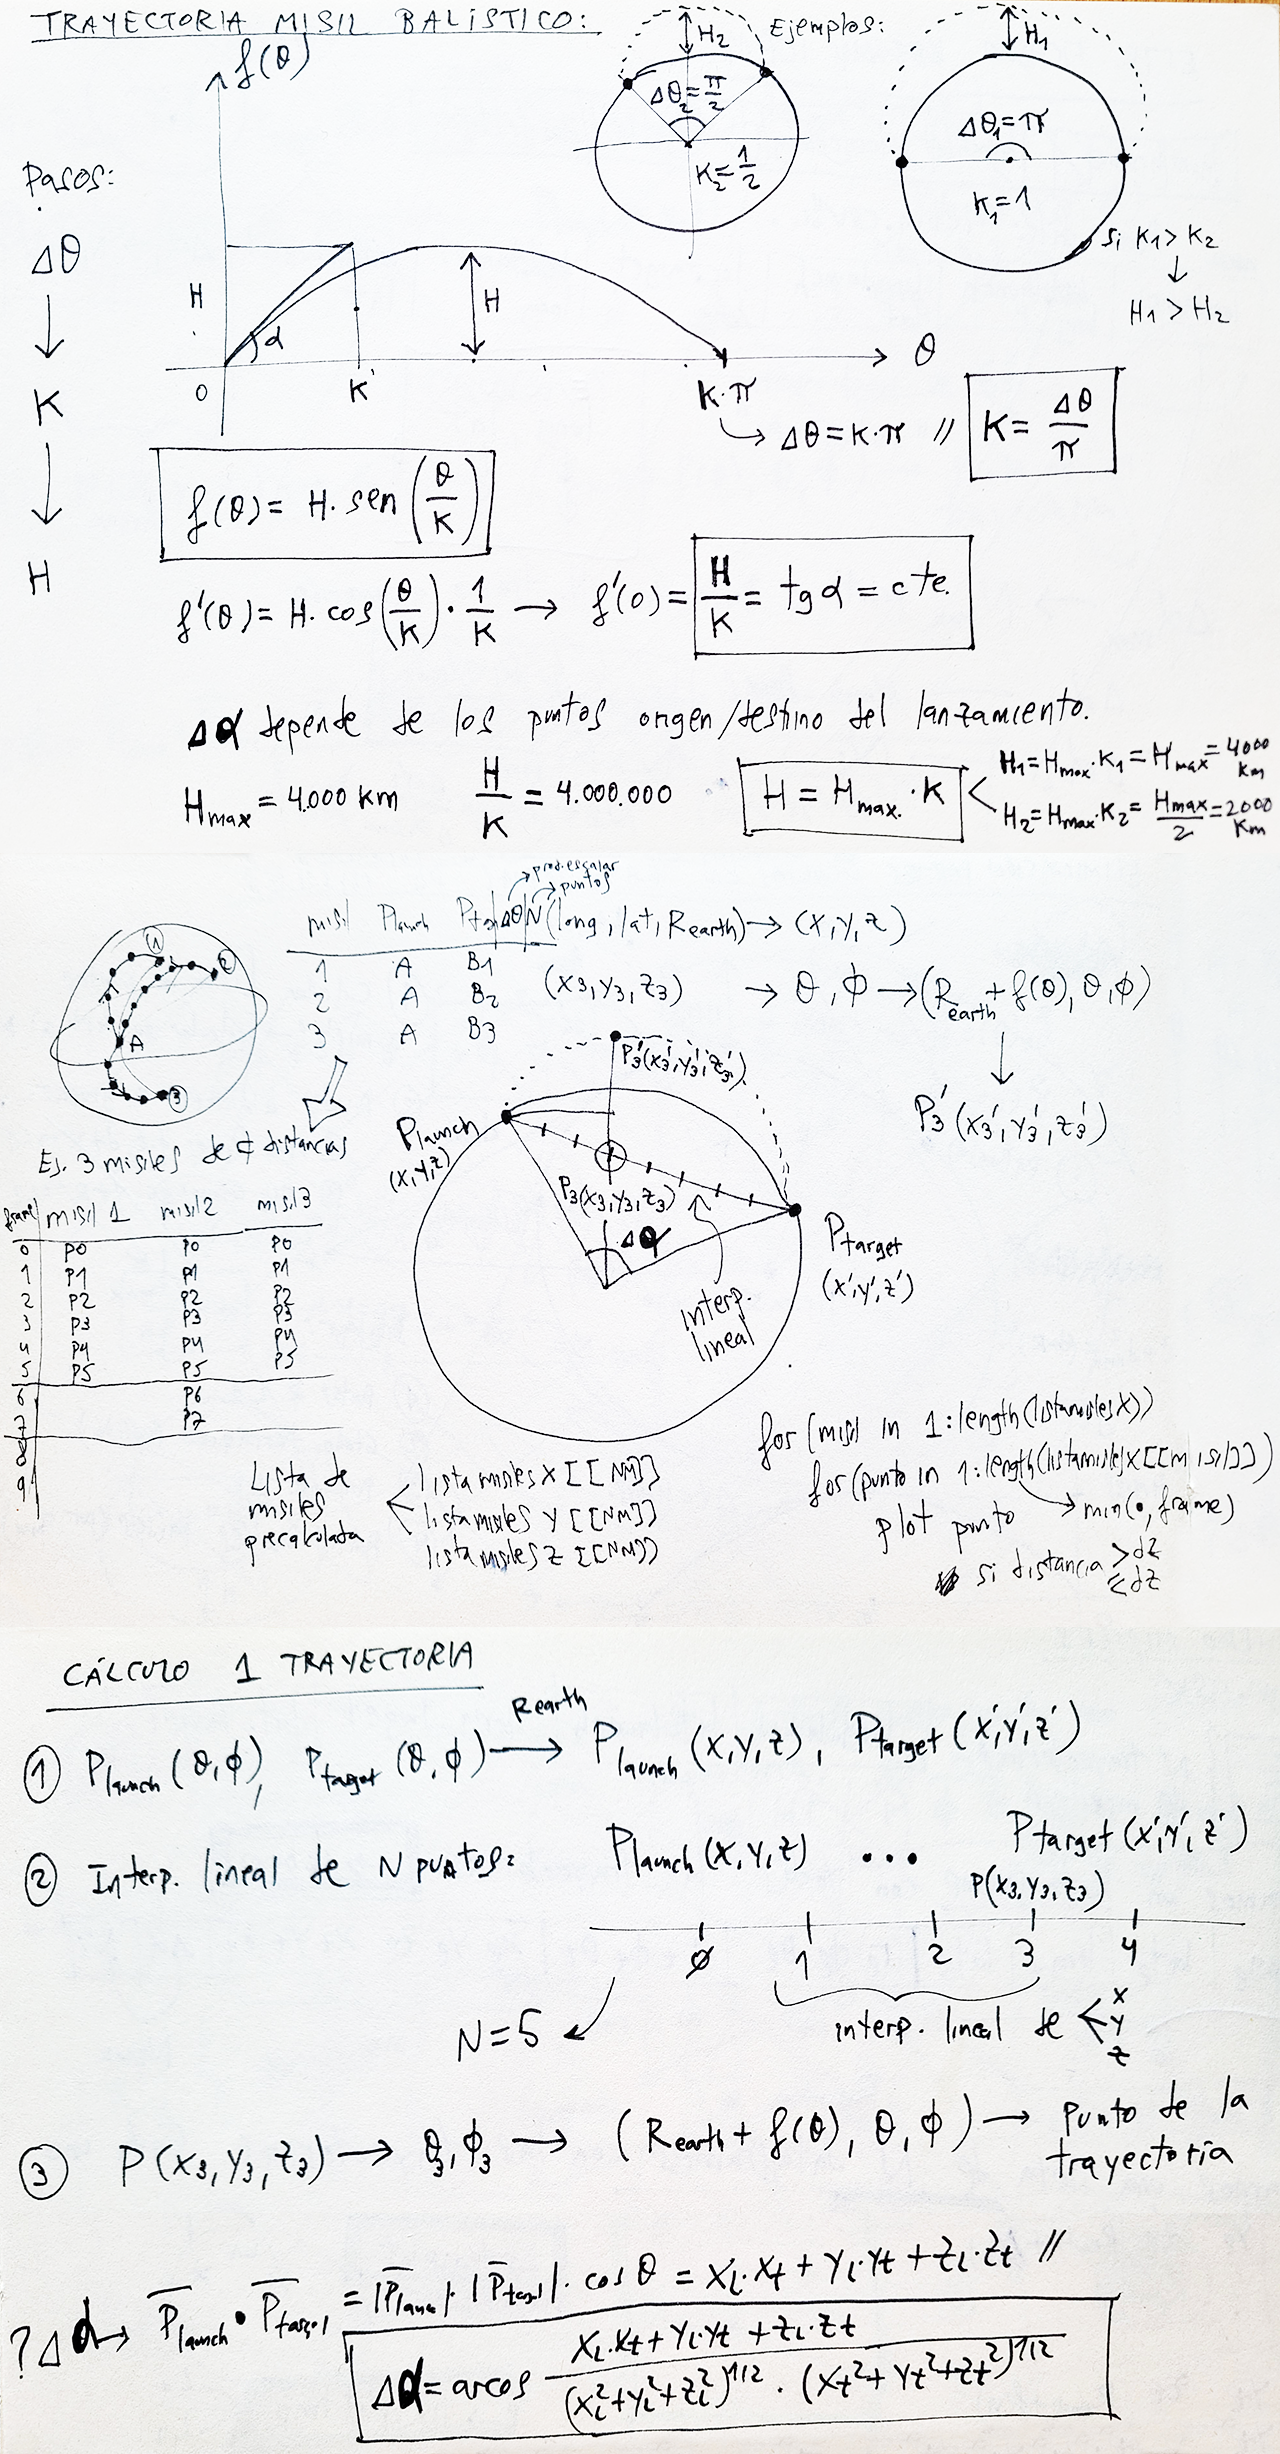 TRAYECTORIA MISIL BALÍSTICO:
Ejemplos:
f(θ)
H2
Δθ2=π/2
K2=1/2
H1
Δθ1=π
K1=1
si K1>K2
↓
H1>H2
Pasos:
Δθ
↓
K
↓
H
H
α
H
0
K
K·π
θ
↳ Δθ=K·π // K=Δθ/π
f(θ)= H·sen(θ/K)
f'(θ)= H·cos(θ/K)·1/K → f'(0)= H/K = tg α = cte.
Δα depende de los puntos origen/destino del lanzamiento.
Hmax = 4.000 km
H/K = 4.000.000
H = Hmax·K
H1=Hmax·K1=Hmax=4000 km
H2=Hmax·K2=Hmax/2=2000 km
prod.escalar
puntos
misil Plaunch Ptg Δθ N
1 A B1
2 A B2
3 A B3
(long, lat, Rearth) → (x,y,z)
(x3,y3,z3) → θ,ϕ → (Rearth+f(θ),θ,ϕ)
↓
P3'(x3',y3',z3')
1
2
A
3
Ej. 3 misiles de ≠ distancias
frame misil 1 misil2 misil3
0 P0 P0 P0
1 P1 P1 P1
2 P2 P2 P2
3 P3 P3 P3
4 P4 P4 P4
5 P5 P5 P5
6 P6
7 P7
8
9
P3'(x3',y3',z3')
Plaunch
(x,y,z)
P3(x3,y3,z3)
Δα
Ptarget
(x',y',z')
interp.
lineal
Lista de
misiles
precalculada
listamisilesX[[NM]]
listamisilesY[[NM]]
listamisilesZ[[NM]]
for (misil in 1:length(listamisilesX))
for (punto in 1:length(listamisilesX[[misil]]))
plot punto → min(•,frame)
si distancia >dz
≤dz
CÁLCULO 1 TRAYECTORIA
① Plaunch(θ,ϕ), Ptarget(θ,ϕ) Rearth → Plaunch(x,y,z), Ptarget(x',y',z')
② Interp. lineal de N puntos:
Plaunch(x,y,z) ... Ptarget(x',y',z')
P(x3,y3,z3)
Ø 1 2 3 4
N=5
interp. lineal de < x
y
z
③ P(x3,y3,z3) → θ3,ϕ3 → (Rearth+f(θ),θ,ϕ) → punto de la
trayectoria
?Δα → Plaunch • Ptarget = |Plaunch|·|Ptarget|·cosθ = xl·xt+yl·yt+zl·zt //
Δα=arcos (xl·xt+yl·yt+zl·zt)/((xl²+yl²+zl²)^1/2·(xt²+yt²+zt²)^1/2)